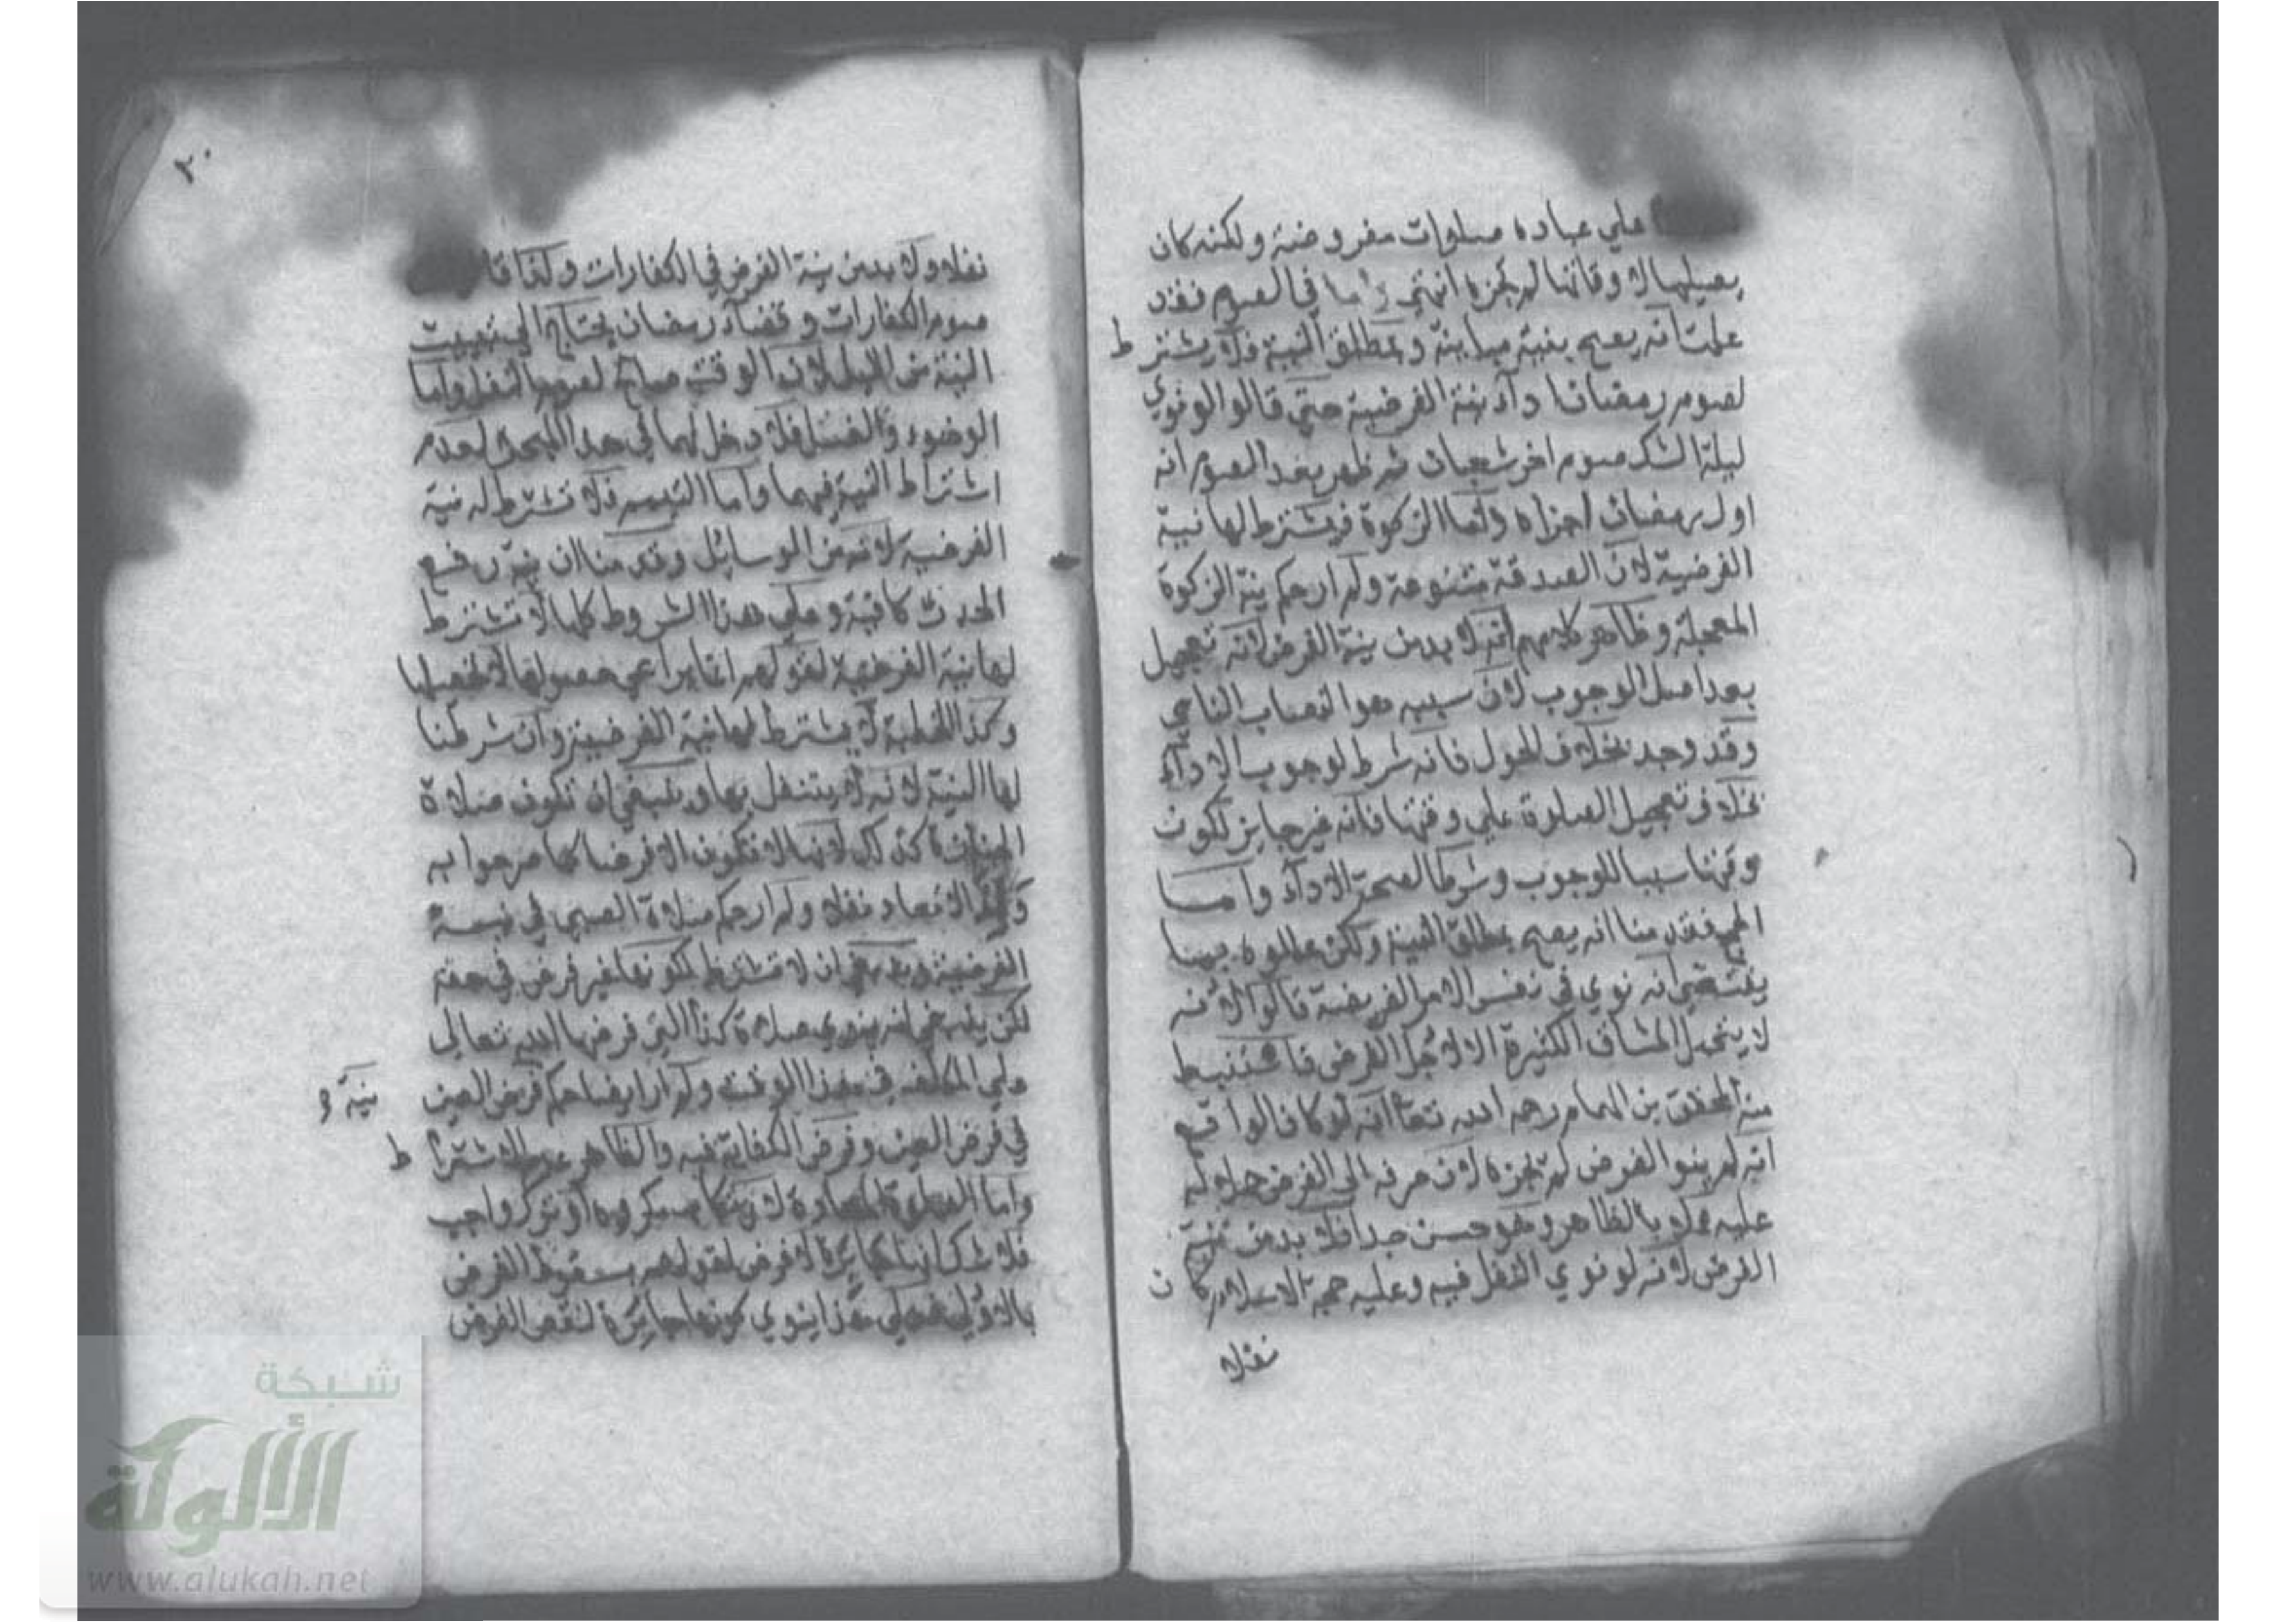 علي عباده صلوات مفروضة ولكنه كان
يصليها لاوقاتها لم تجزه انتهي واما في الصوم فقد
علمت انه يصح بنية مباينة وبمطلق النية فلا يشترط
لصوم رمضان اداء نية الفرضية حتي قالوا لو نوي
ليلة الشك صوم اخر شعبان ثم ظهر بعد الصوم انه
اول رمضان اجزاه واما الزكوة فيشترط لها نية
الفرضية لان الصدقة متنوعة ولم ار حكم نية الزكوة
المعجلة وظاهر كلامهم انه لا بد من نية الفرض لانه تعجيل
بعد اصل الوجوب لان سببه هو النصاب النامي
وقد وجد بخلاف الحول فانه شرط لوجوب الاداء
بخلاف تعجيل الصلوة علي وقتها فانه غير جايز لكون
وقتها سببا للوجوب وشرطا لصحة الاداء واما
الحج فقد منا انه يصح بمطلق النية ولكن عللوه بما
يقتضي انه نوي في نفس الامر الفريضة قالوا لانه
لا يتحمل المشاق الكثيرة الا لاجل الفرض فاستنبط
منه المحقق بن الهمام رحمه الله تعا انه لو كان الواقع
انه لم ينو الفرض لم تجزه لان صرفه الي الفرض حملا له
عليه عملا بالظاهر وهو حسن جدا فلا بد من نية
الفرض لانه لو نوي النفل فيه وعليه حجة الاسلام كان
نفلا
٢٠
نفلا ولا بد من نية الفرض في الكفارات ولذا قا
صوم الكفارات وقضاء رمضان يحتاج الي تبييت
النية من الليل لان الوقت صالح لصوم النفل واما
الوضوء والغسل فلا دخل لهما في هذا المبحث لعدم
اشتراط النية فيهما واما التيمم فلا تشترط له نية
الفرضية لانه من الوسايل وقد منا ان نية رفع
الحدث كافية وعلي هذا الشروط كلها لا تشترط
لها نية الفرضية لقولهم انما يراعي حصولها لا تحصيلها
وكذا الخطبة لا يشترط لها نية الفرضية وان شرطنا
لها النية لانه لا يتنفل بها وينبغي ان تكون صلاة
الجنازة كذلك لانها لا تكون الا فرضا كما صرحوا به
ولهذا لا تعاد نفلا ولم ار حكم صلاة الصبي في نية
الفرضية وينبغي ان لا تشترط لكونها غير فرض في حقه
لكن ينبغي ان ينوي صلاة كذا التي فرضها الله تعالي
علي المكلف في هذا الوقت ولم ار ايضا حكم فرض العين
نية و
في فرض العين وفرض الكفاية فيه والظاهر عدم الاشتراط
واما الصلوة المعادة لارتكاب مكروه او ترك واجب
فلا شك انها جابرة لا فرض لقولهم بسقوط الفرض
بالاولي فعلي هذا ينوي كونها جابرة لنقص الفرض
شبكة
الألوكة
www.alukah.net